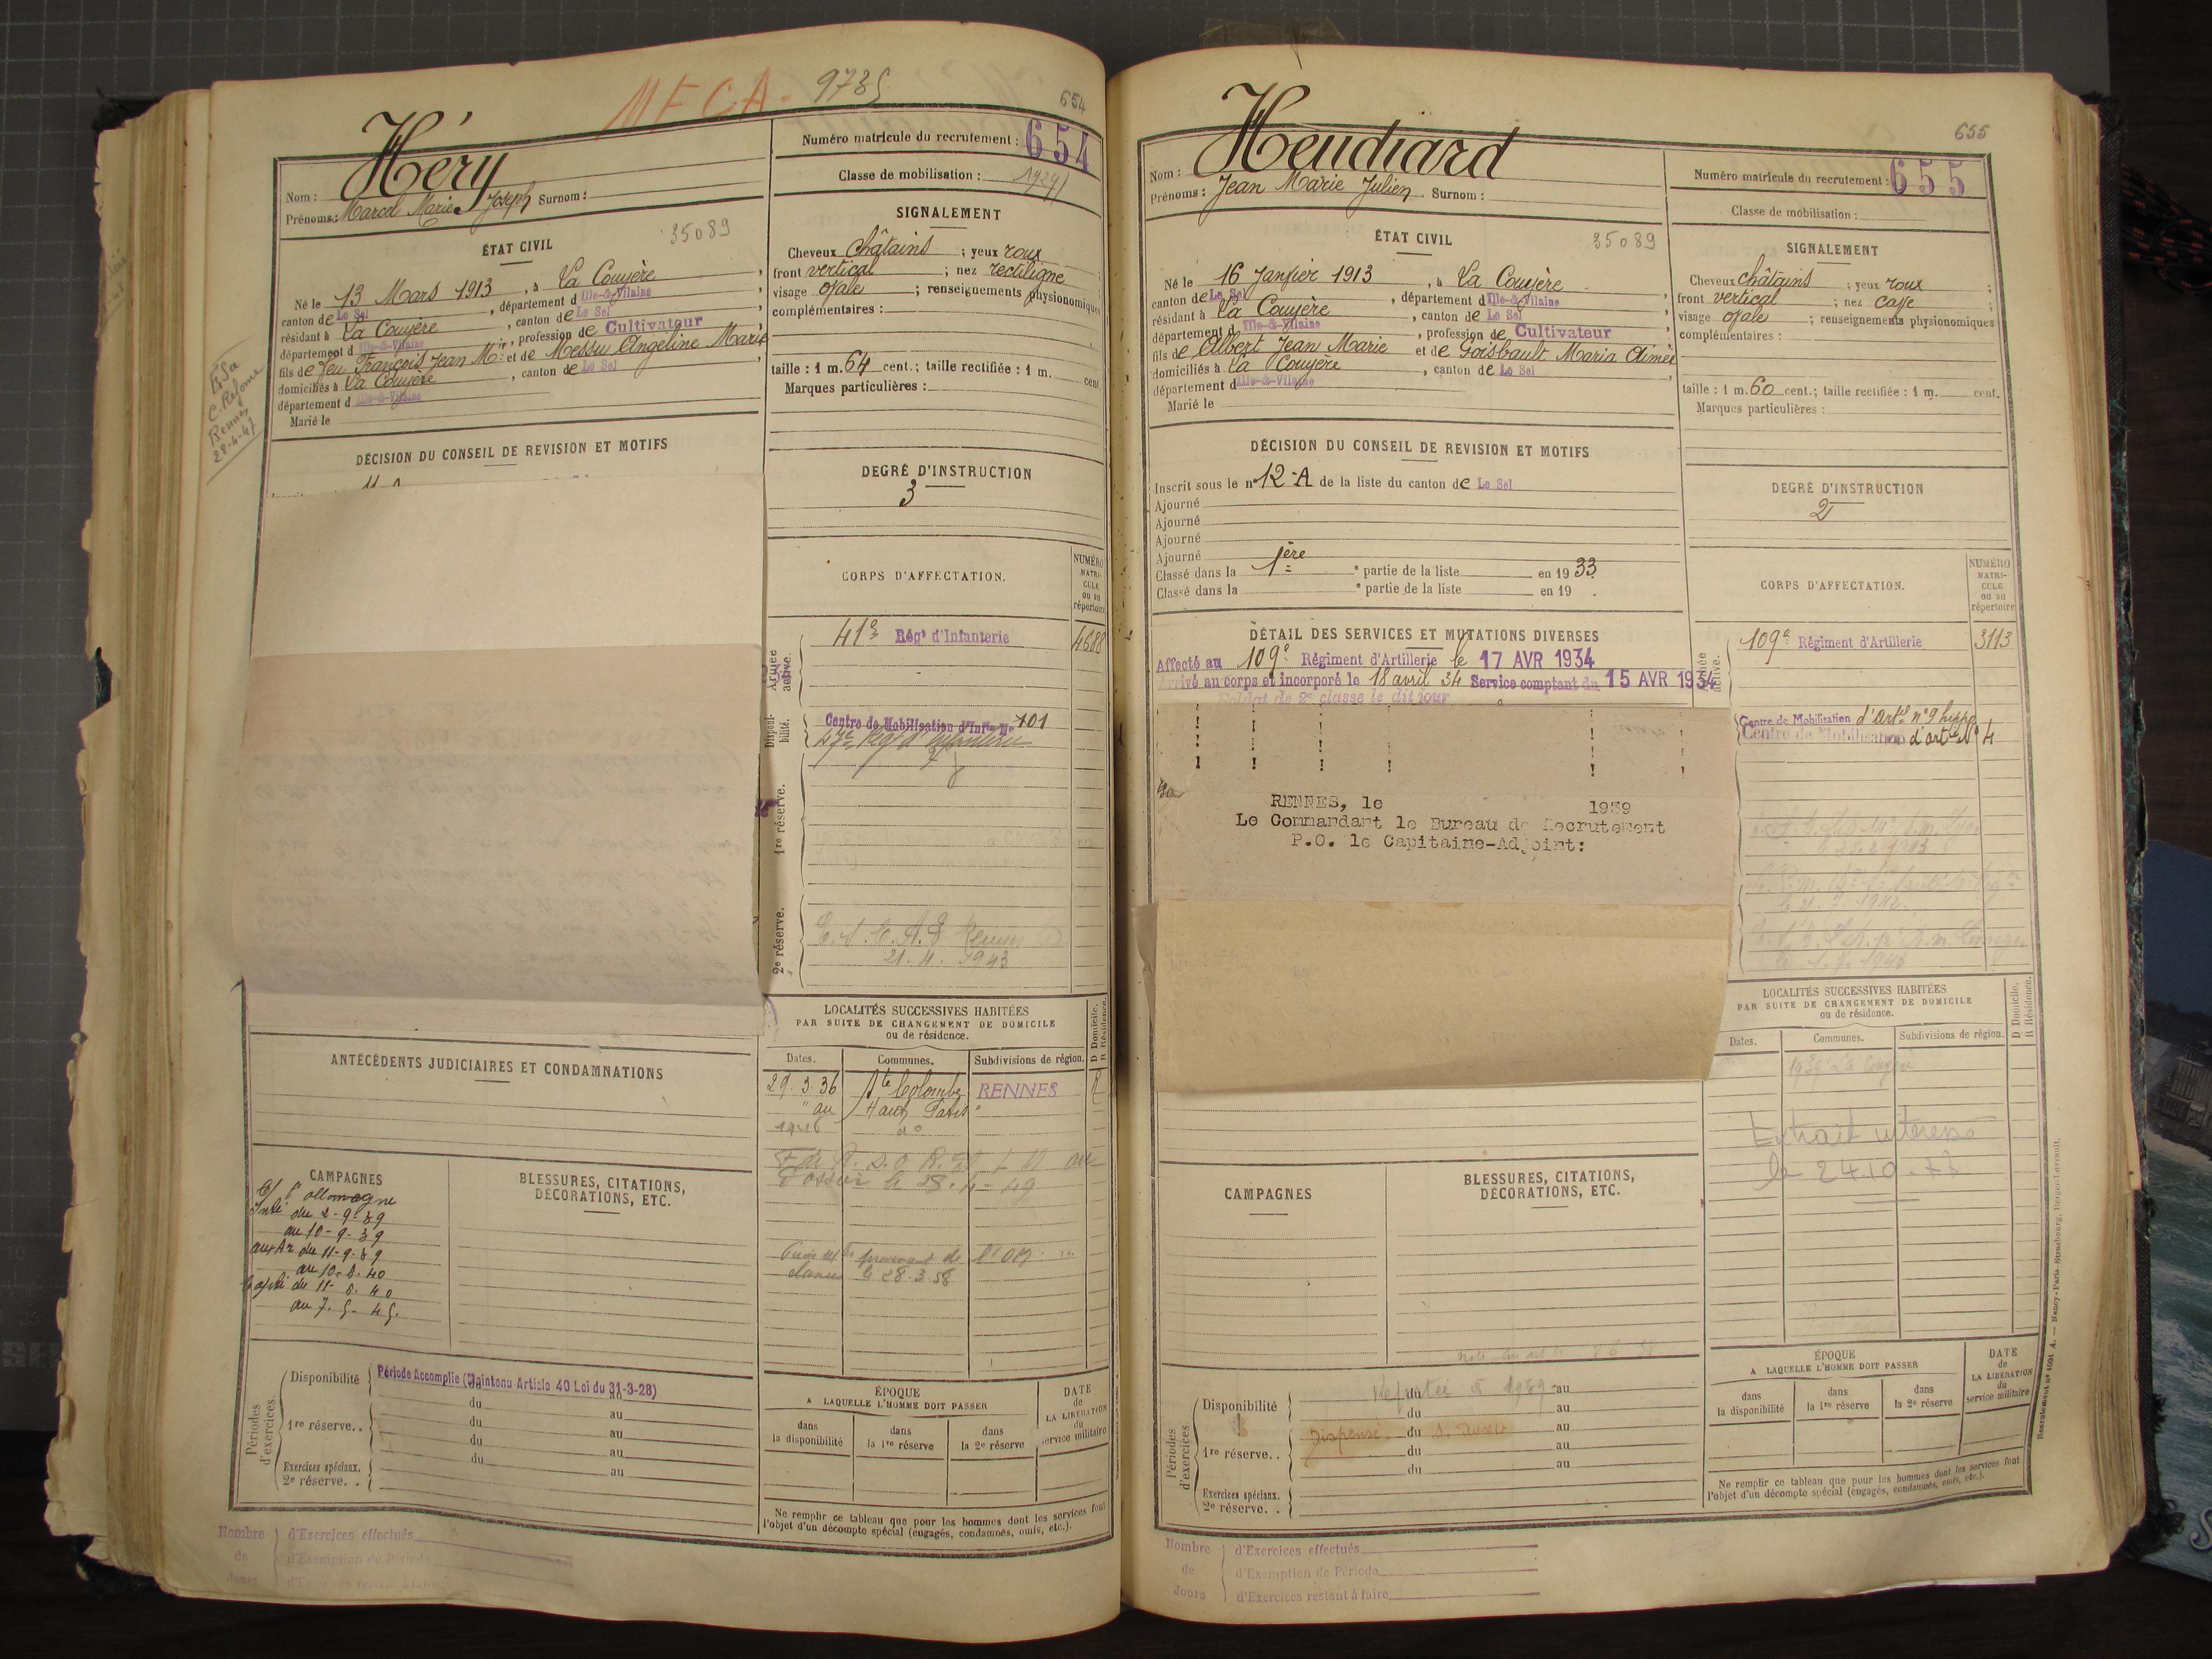 MFCA - 9735
654
Héry
Nom :
Prénoms : Marcel Marie Joseph Surnom :
Numéro matricule du recrutement : 654
Classe de mobilisation :
ÉTAT CIVIL
35089
Né le 13 Mars 1913, à La Couyère,
canton de Le Sel, département d Ille-&-Vilaine
résidant à La Couyère, canton de Le Sel
département d Ille-&-Vilaine, profession de Cultivateur
fils de feu François Jean Mie et de Messu Angeline Marie
domiciliés à La Couyère, canton de Le Sel
département d Ille-&-Vilaine
Marié le
SIGNALEMENT
Cheveux châtains ; yeux roux
front vertical ; nez rectiligne
visage ovale ; renseignements physionomiques
complémentaires :
taille : 1 m. 64 cent.; taille rectifiée : 1 m. cent.
Marques particulières :
C. Réforme
Rennes
28-4-47
DÉCISION DU CONSEIL DE REVISION ET MOTIFS
DEGRÉ D'INSTRUCTION
3
CORPS D'AFFECTATION.
NUMÉRO
MATRI-
CULE
ou au
répertoire
Armée
active.
41e Régt d'Infanterie 4688
Disponi-
bilité.
Centre de Mobilisation d'Infie No 101
47e Regt d'Infanterie
1re réserve.
2e réserve.
21. 4. 1943
LOCALITÉS SUCCESSIVES HABITÉES
PAR SUITE DE CHANGEMENT DE DOMICILE
ou de résidence.
D Domicile.
R Résidence.
Dates. Communes. Subdivisions de région.
29. 3. 36 Ste Colombe RENNES R
" au Haut Patis "
Dossier le 28-4-49
le 28.3.58
ANTÉCÉDENTS JUDICIAIRES ET CONDAMNATIONS
CAMPAGNES
C/ l'allemagne
Intr du 2-9-39
au 10-9-39
aux Ar du 11-9-39
au 10.6.40
Captté du 11-6.40
au 7.5-45.
BLESSURES, CITATIONS,
DÉCORATIONS, ETC.
Périodes
d'exercices.
Disponibilité Période Accomplie (Maintenu Article 40 Loi du 31-3-28)
du au
1re réserve.. du au
du au
Exercices spéciaux. du au
2e réserve. .
ÉPOQUE
A LAQUELLE L'HOMME DOIT PASSER
dans
la disponibilité
dans
la 1re réserve
dans
la 2e réserve
DATE
de
LA LIBÉRATION
du
service militaire
Ne remplir ce tableau que pour les hommes dont les services font
l'objet d'un décompte spécial (engagés, condamnés, omis, etc.).
Nombre
de
Jours
d'Exercices effectués
d'Exemption de Période
d'Exercices restant à faire
655
Heudiard
Nom :
Prénoms : Jean Marie Julien Surnom :
Numéro matricule du recrutement : 655
Classe de mobilisation :
ÉTAT CIVIL
35089
Né le 16 Janvier 1913, à La Couyère,
canton de Le Sel, département d Ille-&-Vilaine
résidant à La Couyère, canton de Le Sel
département d Ille-&-Vilaine, profession de Cultivateur
fils de Albert Jean Marie et de Goisbault Maria Aimée
domiciliés à La Couyère, canton de Le Sel
département d Ille-&-Vilaine
Marié le
SIGNALEMENT
Cheveux châtains ; yeux roux ;
front vertical ; nez casse ;
visage ovale ; renseignements physionomiques
complémentaires :
taille : 1 m. 60 cent.; taille rectifiée : 1 m. cent.
Marques particulières :
DÉCISION DU CONSEIL DE REVISION ET MOTIFS
Inscrit sous le no 12-A de la liste du canton de Le Sel
Ajourné
Ajourné
Ajourné
Ajourné
Classé dans la 1ère e partie de la liste en 1933
Classé dans la e partie de la liste en 19 .
DEGRÉ D'INSTRUCTION
2
CORPS D'AFFECTATION.
NUMÉRO
MATRI-
CULE
ou au
répertoire
DÉTAIL DES SERVICES ET MUTATIONS DIVERSES
Affecté au 109e Régiment d'Artillerie le 17 AVR 1934
Arrivé au corps et incorporé le 18 avril 34 Service comptant du 15 AVR 1934
Soldat de 2e classe le dit jour
109e Régiment d'Artillerie 3113
Centre de Mobilisation d'Artie n°9 hippo
Centre de Mobilisation d'artie No 4
RENNES, le 1939
Le Commandant le Bureau de Recrutement
P.O. le Capitaine-Adjoint:
LOCALITÉS SUCCESSIVES HABITÉES
PAR SUITE DE CHANGEMENT DE DOMICILE
ou de résidence.
D Domicile.
R Résidence.
Dates. Communes. Subdivisions de région.
1939 La Couyère
Extrait
CAMPAGNES
BLESSURES, CITATIONS,
DÉCORATIONS, ETC.
Périodes
d'exercices.
Disponibilité du 1939 au
du au
Dispensé. du au
1re réserve.. du au
du au
Exercices spéciaux.
2e réserve. .
ÉPOQUE
A LAQUELLE L'HOMME DOIT PASSER
dans
la disponibilité
dans
la 1re réserve
dans
la 2e réserve
DATE
de
LA LIBÉRATION
du
service militaire
Ne remplir ce tableau que pour les hommes dont les services font
l'objet d'un décompte spécial (engagés, condamnés, omis, etc.).
Nombre
de
Jours
d'Exercices effectués
d'Exemption de Période
d'Exercices restant à faire